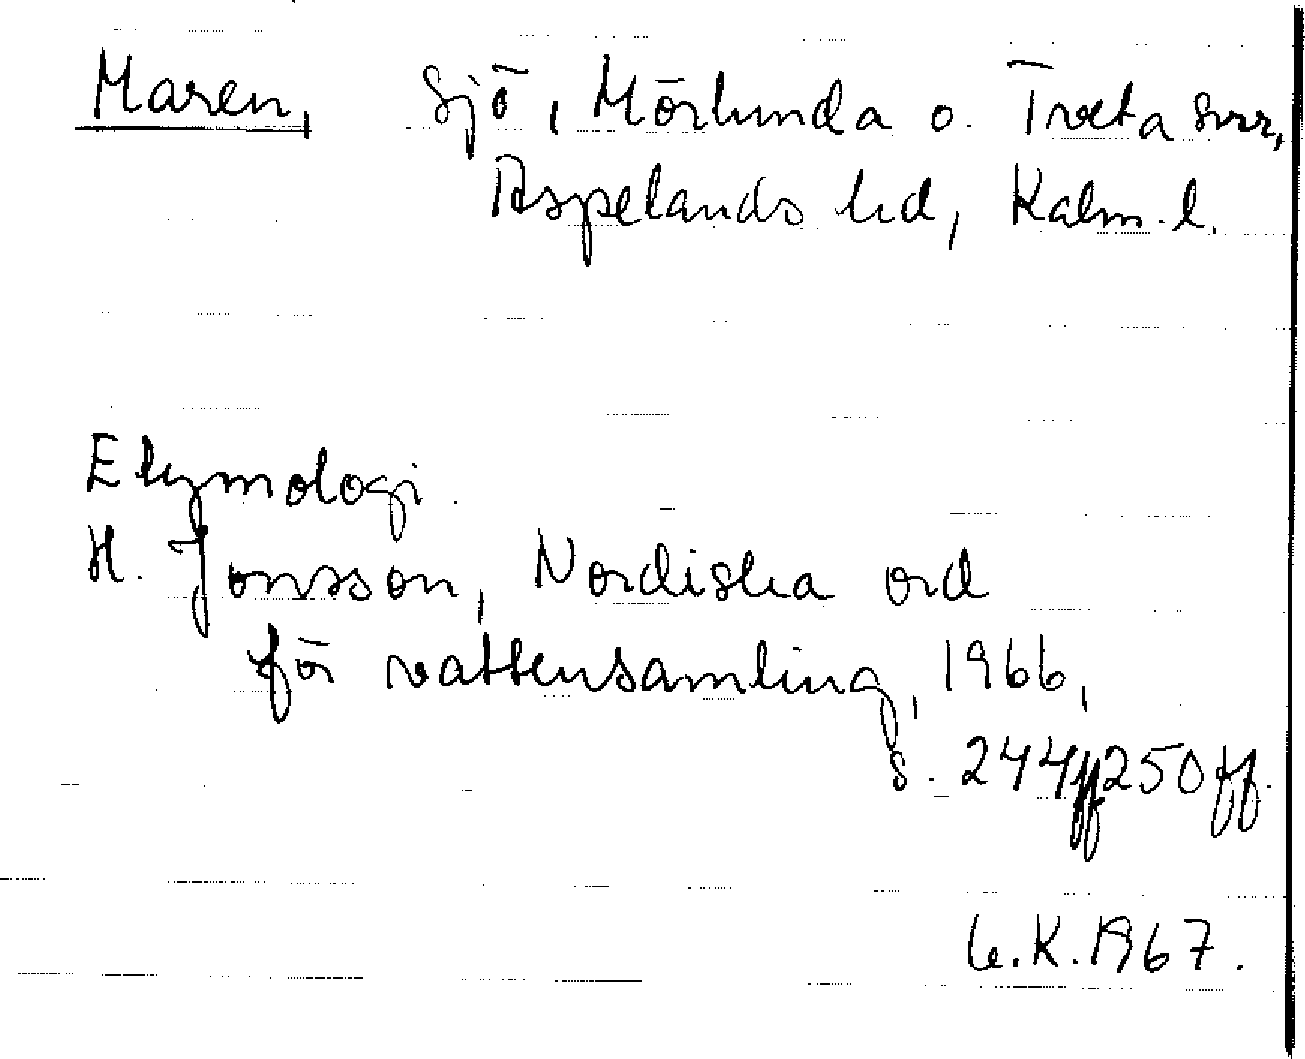 Maren, Sjö, Mörlunda o. Tveta snr,
Aspelands hd, Kalm. l.
Etymologi.
H. Jonsson, Nordiska ord
för vattensamling, 1966,
s. 244ff 250ff.
K. 1967.